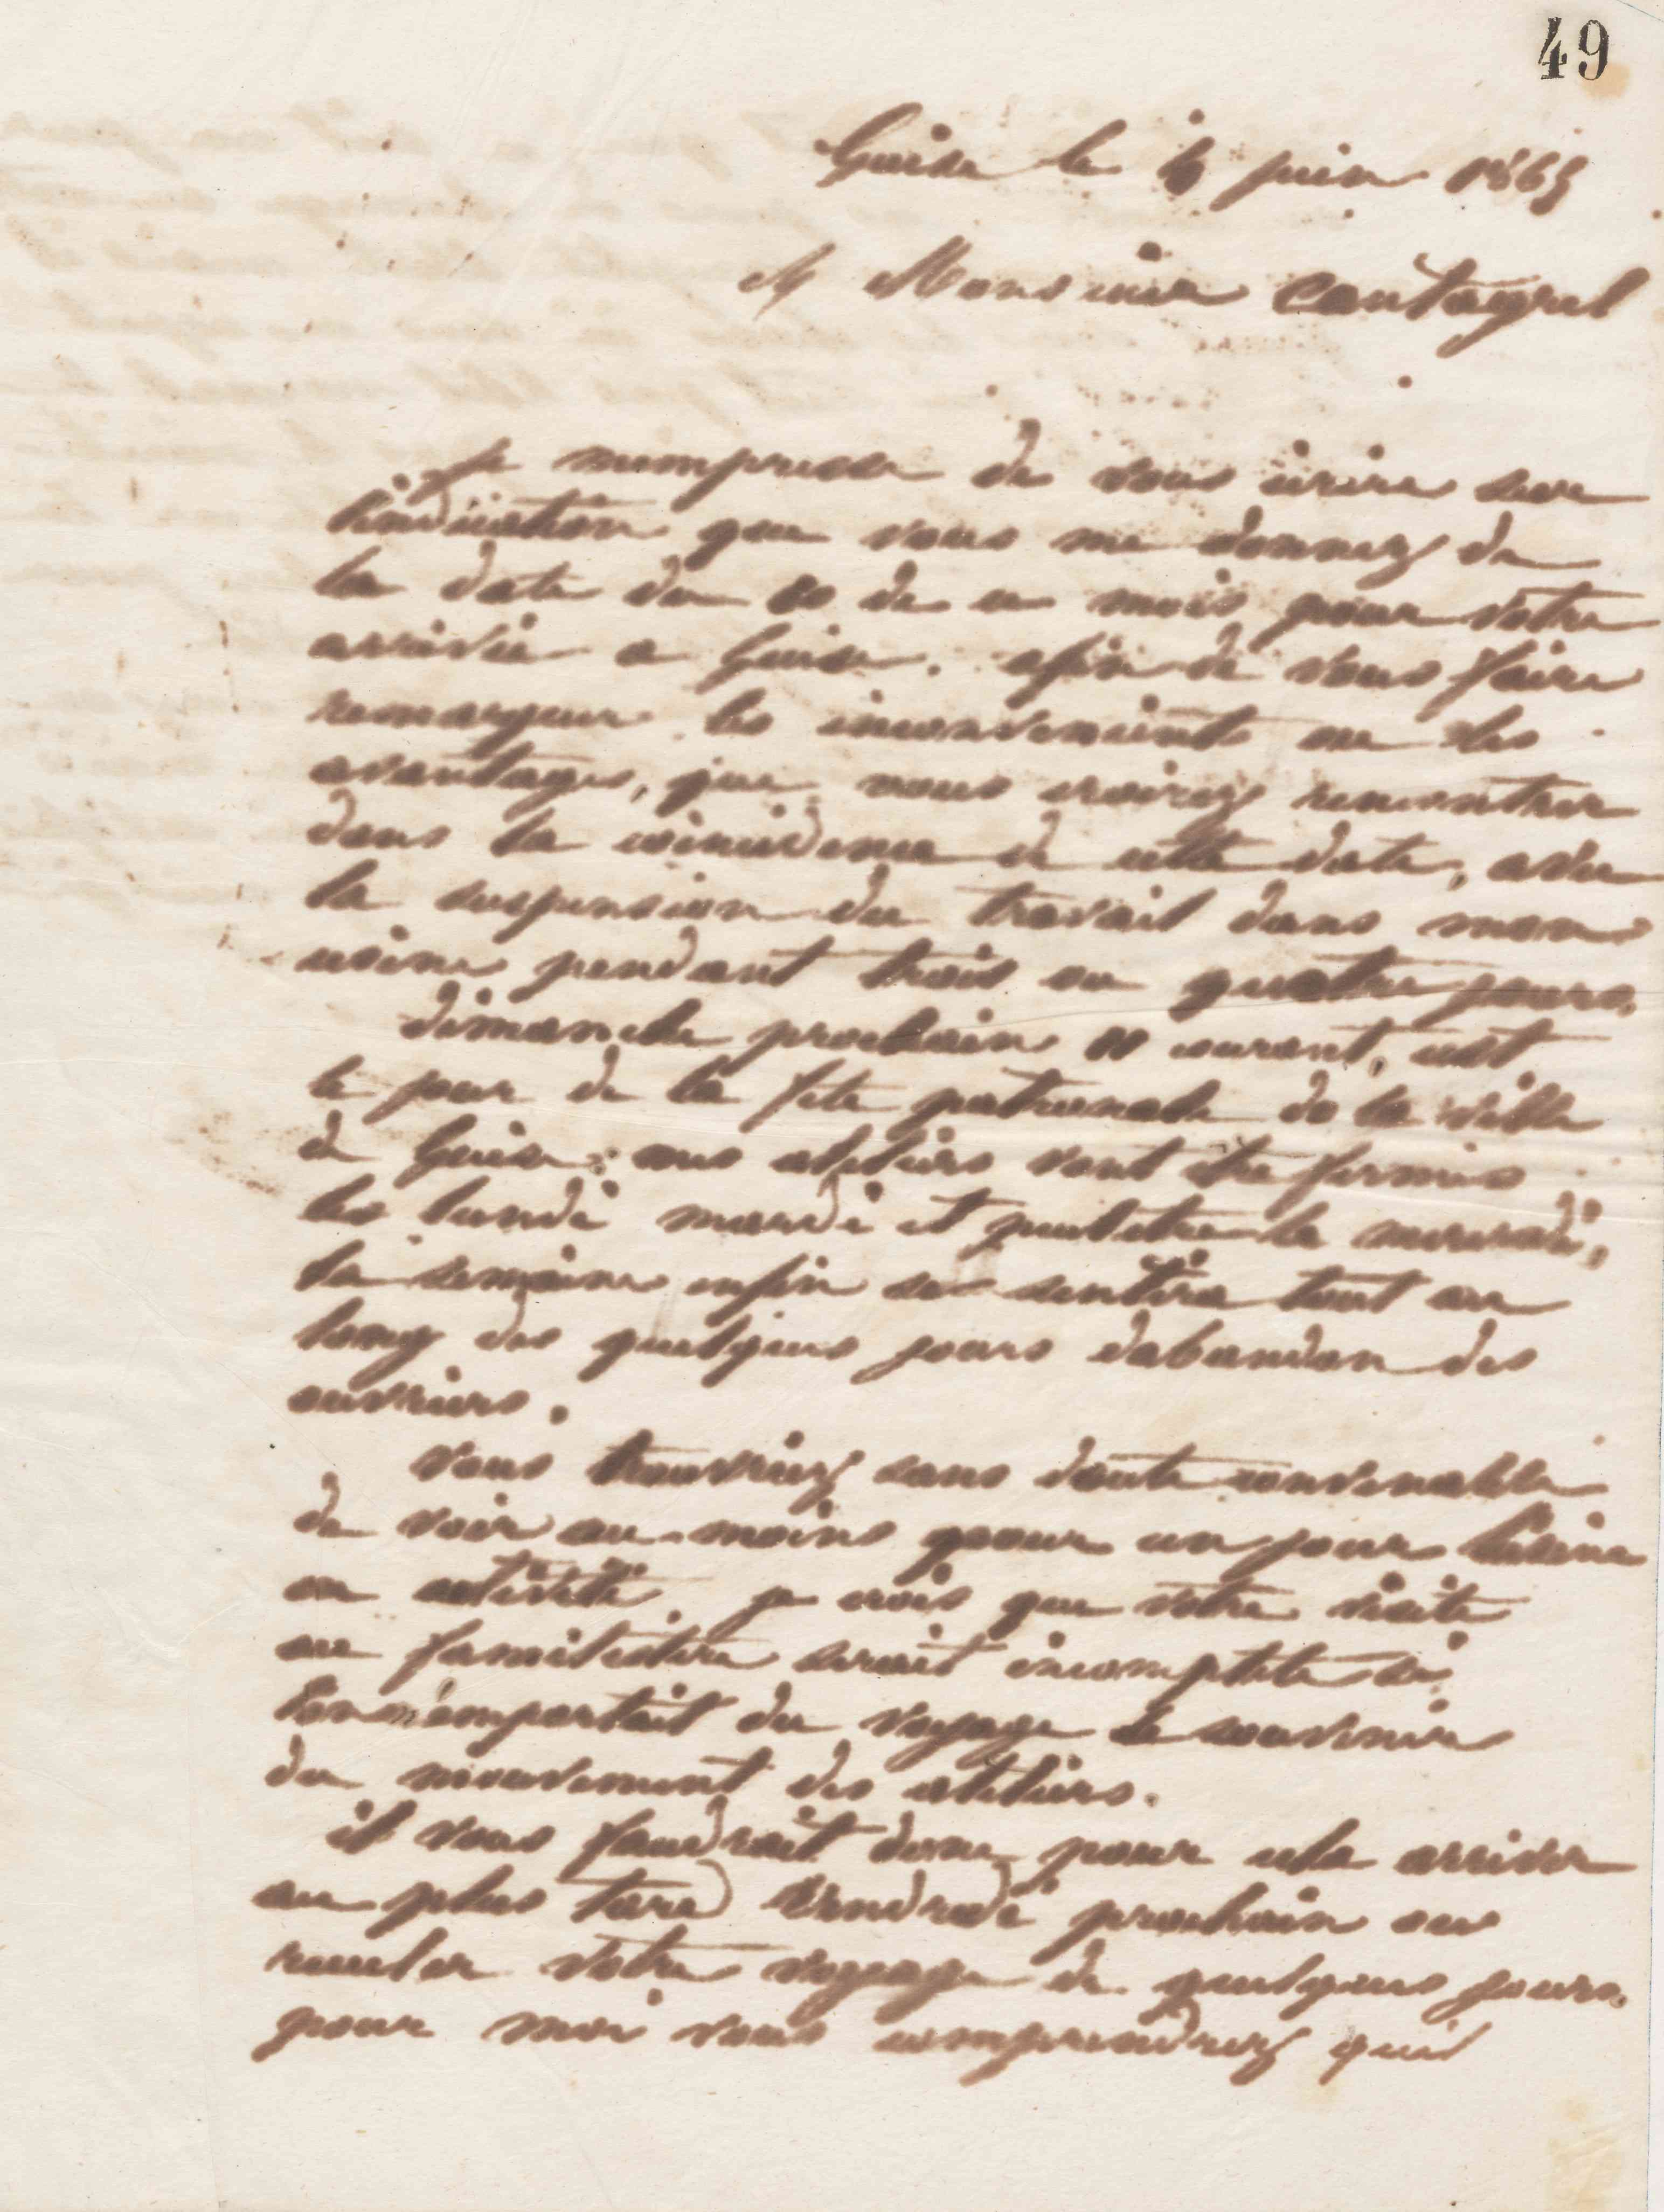 49
Guise le 4 juin 1865
A Monsieur Cantagrel
je mempresse de vous écrire sur
lindication que vous me donnez de
la date du 10 de ce mois pour votre
arrivée a Guise. afin de vous faire
remarquer les inconvenients ou les
avantages, que vous croirez rencontrer
dans la coincidence de cette date, avec
la suspension du travail dans mon
usine pendant trois ou quatre jours.
dimanche prochain 11 courant, est
le jour de la fete patronale de la ville
de Guise. mes ateliers vont etre fermés
les lundi mardi et peutetre le mercredi,
la semaine enfin se sentira tout au
long des quelques jours dabandon des
ouvriers.
vous trouverez sans doute convenable
de voir au moins pour un jour lusine
en activité je crois que votre visite
au familistère serait incomplète si
lon n'emportait du voyage le souvenir
du mouvement des ateliers.
il vous faudrait donc pour cela arriver
au plus tard vendredi prochain ou
reculer votre voyage de quelques jours.
pour moi vous comprendrez quil